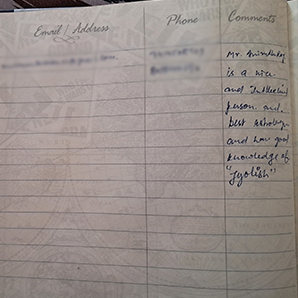 Email / Address Phone Comments
Mr.
is a nice
and
person and
best Astrologer
and have good
knowledge of
"Jyotish"